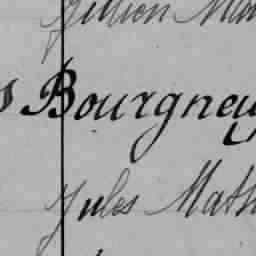 Gillion Mar
s Bourgney
Jules Math